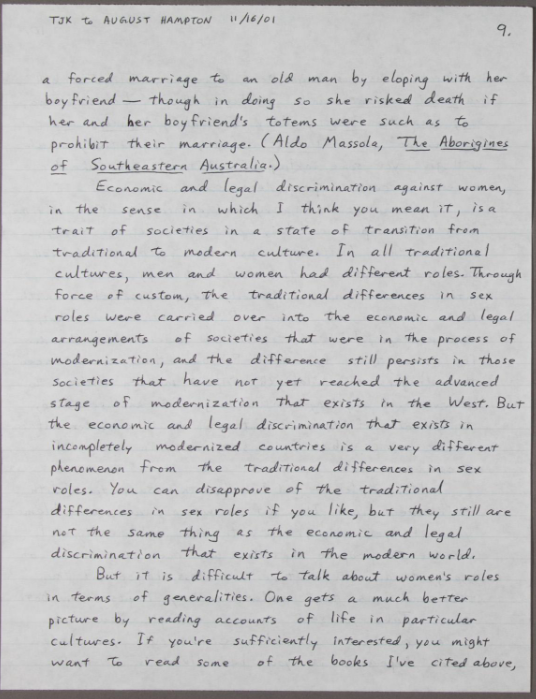 TJK to AUGUST HAMPTON 11/16/01
9.
a forced marriage to an old man by eloping with her
boyfriend — though in doing so she risked death if
her and her boyfriend's totems were such as to
prohibit their marriage. (Aldo Massola, The Aborigines
of Southeastern Australia.)
Economic and legal discrimination against women,
in the sense in which I think you mean it, is a
trait of societies in a state of transition from
traditional to modern culture. In all traditional
cultures, men and women had different roles. Through
force of custom, the traditional differences in sex
roles were carried over into the economic and legal
arrangements of societies that were in the process of
modernization, and the difference still persists in those
societies that have not yet reached the advanced
stage of modernization that exists in the West. But
the economic and legal discrimination that exists in
incompletely modernized countries is a very different
phenomenon from the traditional differences in sex
roles. You can disapprove of the traditional
differences in sex roles if you like, but they still are
not the same thing as the economic and legal
discrimination that exists in the modern world.
But it is difficult to talk about women's roles
in terms of generalities. One gets a much better
picture by reading accounts of life in particular
cultures. If you're sufficiently interested, you might
want to read some of the books I've cited above,